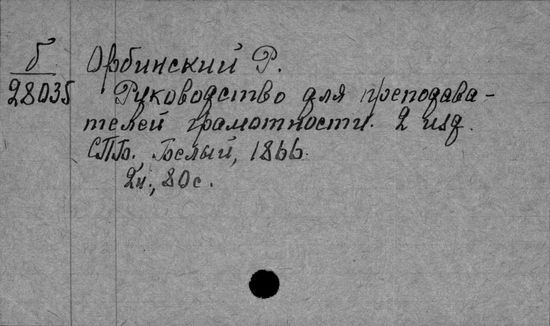 б
28035
Орбинский Р.
Руководство для преподава-
телей грамотности. 2 изд.
СПб. Белый, 1866.
2н., 80 с.